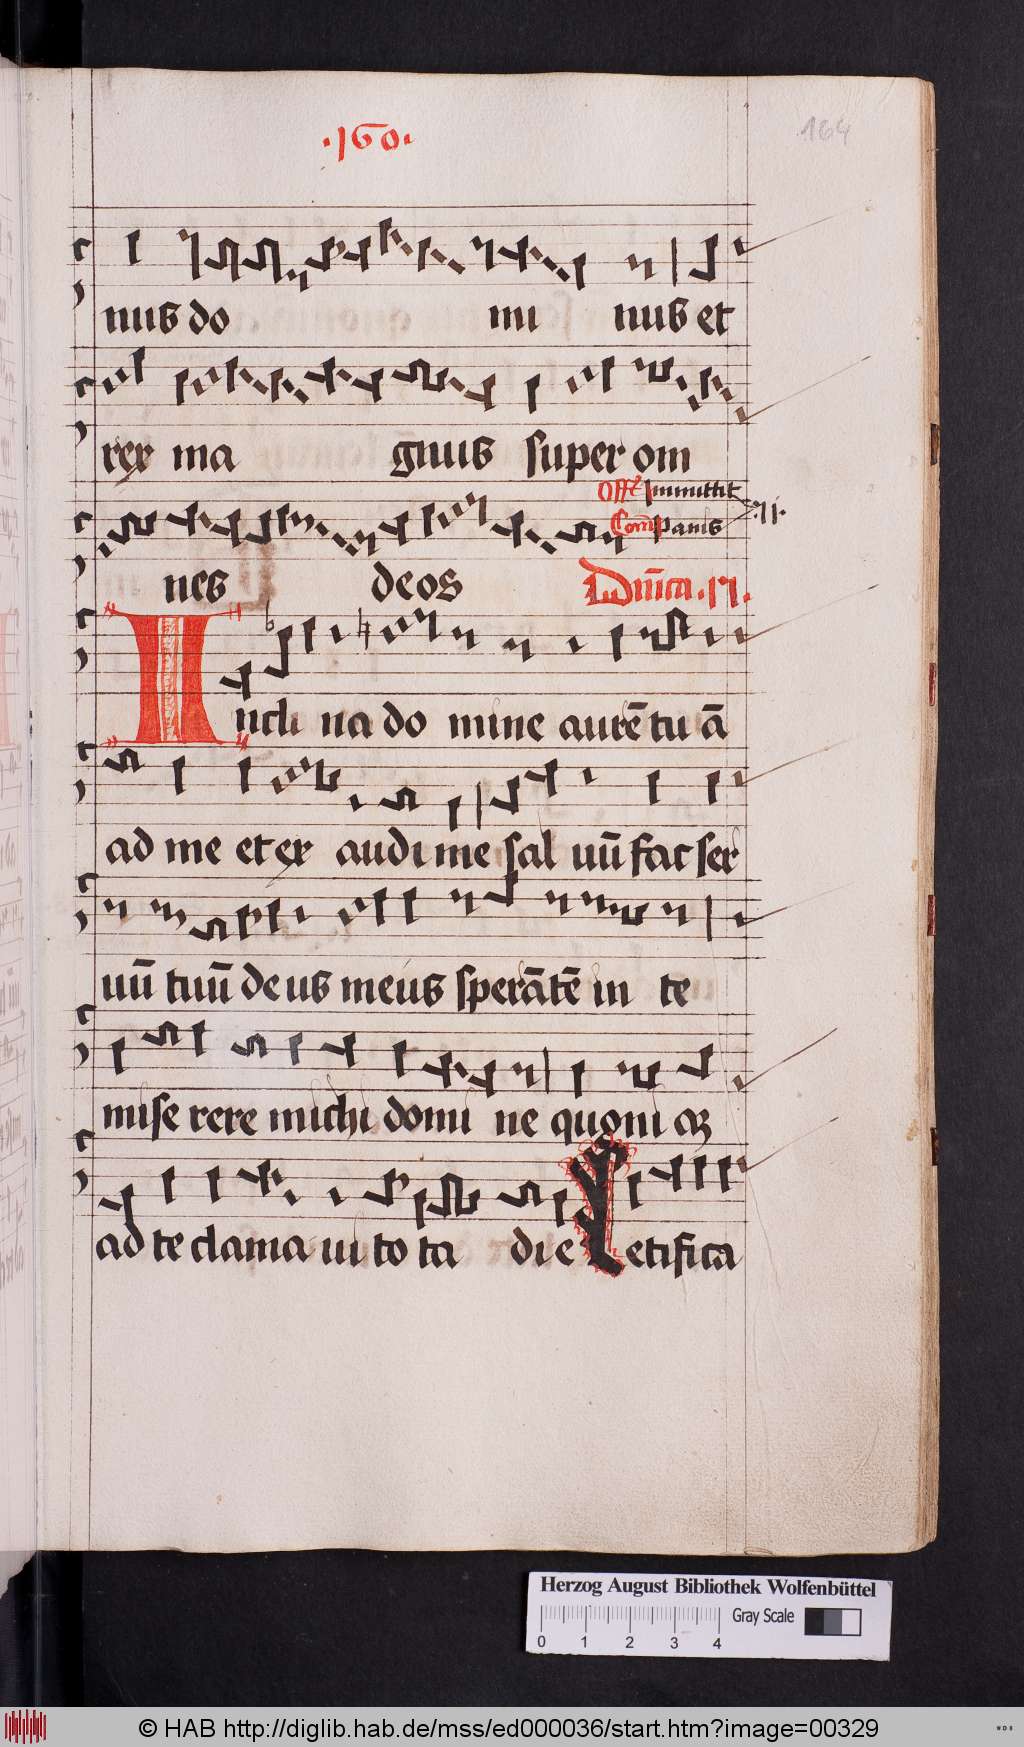 ·160·
164
nus do mi nus et
rex ma gnus super om
Off Immittit
Com Panis
·71·
nes deos Dnica · 17 ·
Incli na do mine aurē tu ā
ad me et ex audi me sal uū fac ser
uū tuū de us meus sperātē in te
mise rere michi domi ne quoni aꝫ
ad te clama ui to ta die Letifica
Herzog August Bibliothek Wolfenbüttel
0 1 2 3 4 Gray Scale
© HAB http://diglib.hab.de/mss/ed000036/start.htm?image=00329